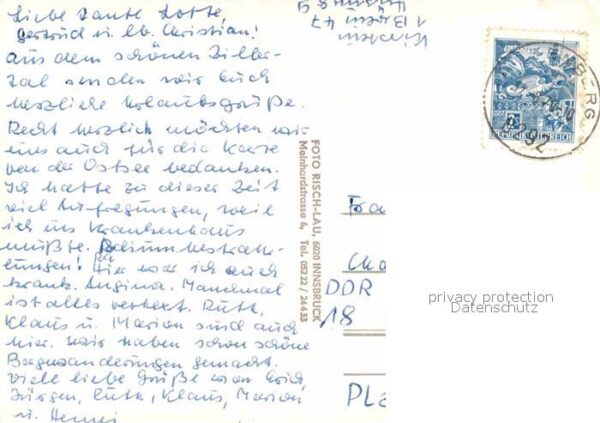 Liebe Tante Lotte,
Gertrud u. lb. Christian!
Aus dem schönen Ziller-
tal senden wir Euch
herzliche Urlaubsgrüße.
Recht herzlich möchten wir
uns auch für die Karte
von der Ostsee bedanken.
Ich hatte zu dieser Zeit
viel Aufregungen, weil
ich ins Krankenhaus
mußte. Radiumbestrah-
lungen! Hier war ich auch
krank. Angina. Manchmal
ist alles verhext. Ruth,
Klaus u. Marion sind auch
hier. Wir haben schon schöne
Bergwanderungen gemacht.
Viele liebe Grüße von Erich,
Jürgen, Ruth, Klaus, Marion
u.
1 Berlin 47
FOTO RISCH-LAU, 6020 INNSBRUCK
Meinhardstrasse 6, Tel. 05222 / 24433
REPUBLIK ÖSTERREICH
6292
Fra
DDR
18
privacy protection
Datenschutz